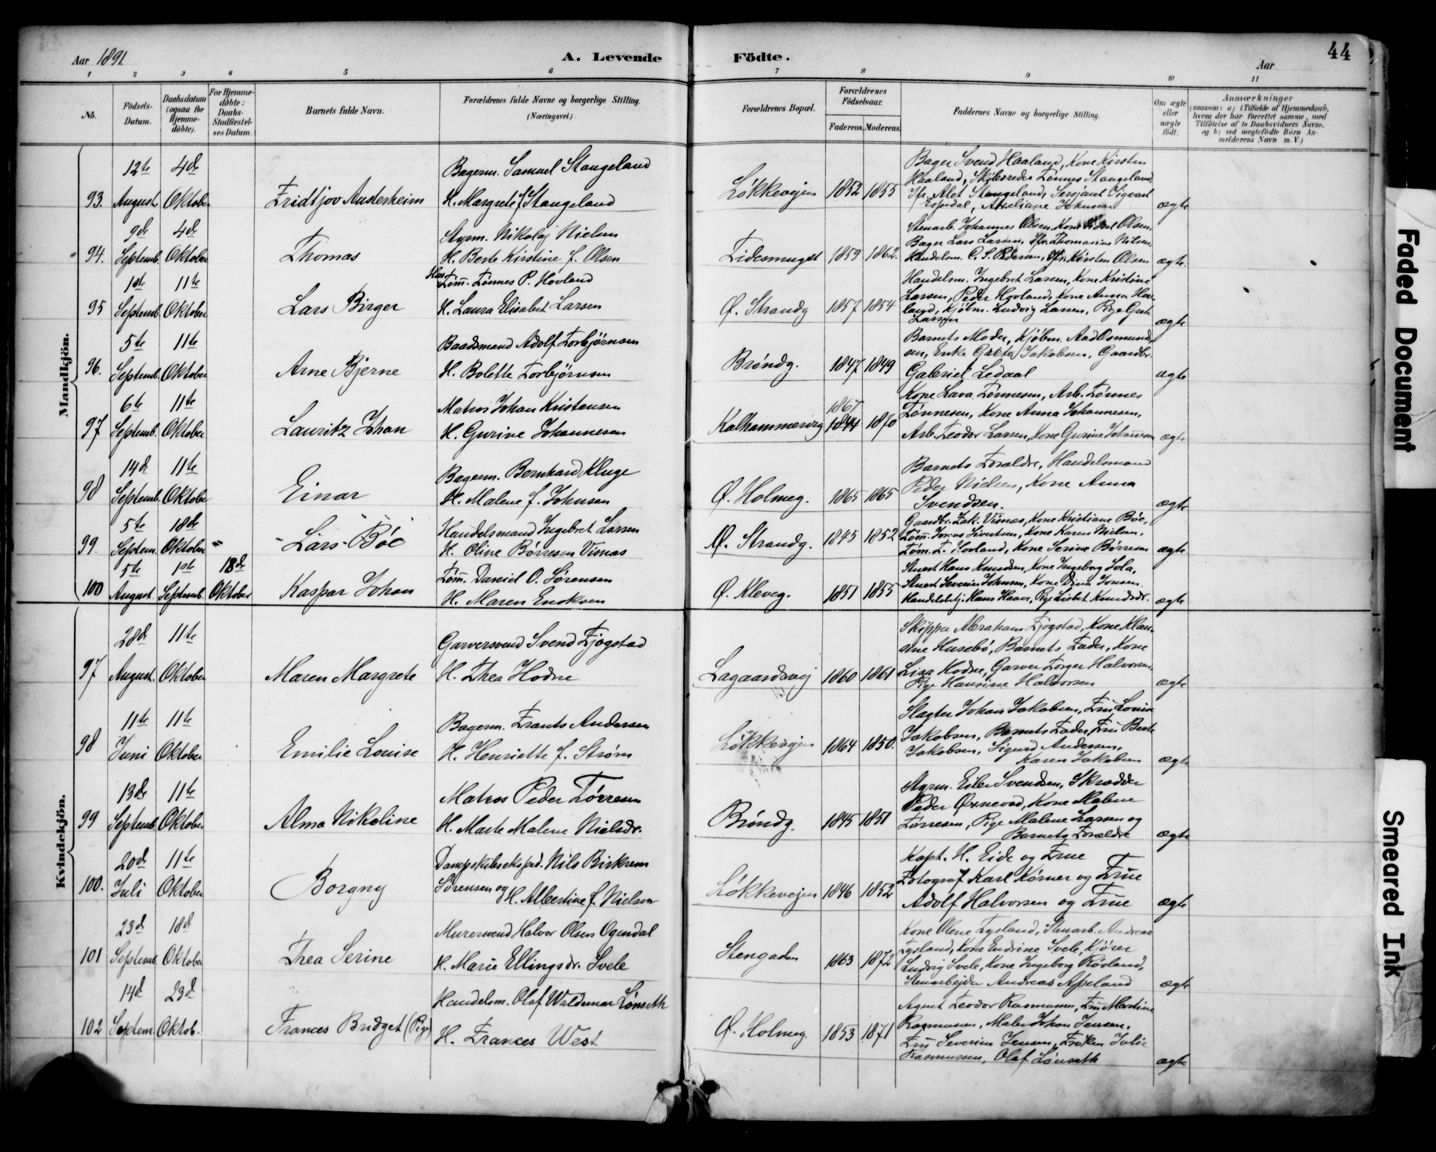 Aar 1891.
A. Levende Födte.
Aar
44
1 2 3 4 5 6 7 8 9 10 11
No.
Födsels-Datum.
Daabsdatum (ogsaa for Hjemme-döbte).
For Hjemme-döbte: Daabs-Stadfæstel-ses Datum.
Barnets fulde Navn.
Forældrenes fulde Navne og borgerlige Stilling. (Næringsvei.)
Forældrenes Bopæl.
Forældrenes Födselsaar.
Faderens. Moderens.
Faddernes Navne og borgerlige Stilling.
Om ægte eller uægte födt.
Anmærkninger
(saasom: a) (Tilfælde af Hjemmedaab, hvem der har forrettet samme, med Tilföielse af to Daabsvidners Navne, og b) ved uægtefödte Börn An-melderens Navn m. V.)
Mandkjön.
93. 12te August 4d Oktober
Fridtjov Austerheim
Bagerm. Samuel Stangeland
H. Margrete f. Stangeland
Løkkeveien 1852 1855
Bager Svend Haaland, Kone Kirsten
Haaland, Skibsreder Tønnes Stangeland
ægte
94. 9d Septemb. 4d Oktober
Thomas
Styrm. Nikolai Nielsen
H. Berte Kirstine f. Olsen
1859 1862.
Stenarb. Johannes Olsen, Kone Olsen
Bager Lars Larsen, Thomasine Nilsen
Handelsm. O. S. Pedersen, Kirsten Olsen
ægte
95 1st Septemb. 11te Oktober
Lars Birger
Tøm. Tønnes P. Hovland
H. Laura Elisabet Larsen
Ø. Strandg 1857 1854
Handelsm. Ingebret Larsen, Kone Kristine
Larsen, Peder Hovland, Kone Anna Haa-
land, Kjøbm. Ludvig Larsen, Pige
Larsen
ægte
96. 5te Septemb. 11te Oktober
Arne Bjerne
Baadsmand Adolf Torbjørnsen
H. Bolette Torbjørnsen
Brøndg. 1847 1849
Barnets Moder, Kjøbm. Aad Osmund-
sen, Enke Jakobsen,
Gabriel Ledaal
ægte
97 6te Septemb. 11te Oktober
Lauritz Johan
Matros Johan Kristensen
H. Gurine Johannesen
Kalhammervig 1867 1844 1870
Kone Lava Tønnesen, Arb. Tønnes
Tønnesen, Kone Anna Johannesen,
Arb. Teodor Larsen, Kone Gurine Johannesen
ægte
98 14d Septemb. 11te Oktober
Einar
Bagerm. Bernhard Kluge
H. Malene f. Johnsen
Ø. Holmeg. 1865 1865
Barnets Forældre, Handelsmand
Peder Nielsen, Kone Anna
Svendsen.
ægte
99. 5te Septem. 18d Oktober
Lars Bøe
Handelsmand Ingebret Larsen
H. Olive Børresen Visnas
Ø. Strandg. 1845 1852
Gaardbr. Jak. Visnes, Kone Kristiane Bøe,
Tøm. Jonas Sivertsen, Kone Karen Nielsen,
Tøm. T. Hovland, Kone Serine Børresen
ægte
100 5te August 1st Septemb. 18d Oktober
Kaspar Johan
Tøm. Daniel O. Sørensen
H. Maren Enoksen
Ø. Kleveg. 1851 1855
Stuert Hans Knudsen, Kone Ingeborg Sola,
Stuert Severin Johnsen, Kone Jonsen
Handelsbetj. Hans Haave, Pige Lisbet Knudsdr.
ægte
Kvindekjön.
97 28d August. 11te Oktober
Maren Margrete
Garversvend Svend Fjøgstad
H. Thea Hodne
Lagaardsvej 1860 1861
Skipper Abraham Fjøgstad, Kone Klau-
dne Husebø, Barnets Fader, Kone
Lisa Hodne, Garver Torger Halvorsen
Pige Hansine Halvorsen
ægte
98 11te Juni 11te Oktober
Emilie Louise
Bagerm. Frants Andersen
H. Henriette f. Strøm
Løkkeveien 1864 1850.
Slagter Johan Jakobsen, Fru Lovise
Jakobsen, Barnets Fader, Fru Berte
Jakobsen, Sigurd Andersen,
Karen Jakobsen
ægte
99 13d Septemb. 11te Oktober
Alma Nikoline
Matros Peder Tørresen
H. Marte Malene Nielsdr.
Brøndg. 1845 1851
Styrm. Eiler Svendsen, Skrædder
Peder Øxnevad, Kone Malene
Tørresen, Pige Malene Larsen og
Barnets Forældre
ægte
100. 20d Juli 11te Oktober
Borgny
Dampskibsexped. Nils Birkrem
Sørensen og H. Albertine f. Nielsen
Løkkeveien 1846 1852
Kapt. H. Eide og Frue
Fotograf Karl Kørner og Frue
Adolf Halvorsen og Frue
ægte
101 23d Septemb. 18d Oktober
Thea Serine
Murersvend Halvor Olsen Ogendal
H. Marie Ellingsdr. Svele
Stengaden 1863 1872
Kone Olene Tysland, Stenarb. Andreas
Tysland, Kone Endrine Svele, Kjører
Ludvig Svele, Kone Ingeborg Røvland,
Stenarbejder Andreas Apeland
ægte
102 14d Septem. 23d Oktob.
Frances Bridget (Pige)
Handelsm. Olaf Waldemar Lønseth
H. Frances West
Ø. Holmeg. 1853 1871
Agent Teodor Rasmussen, Fru Martine
Rasmussen, Maler Johan Jensen,
Fru Severine Jensen, Frøken Julie
Rasmussen, Olaf Lønseth
ægte
Faded Document
Smeared Ink